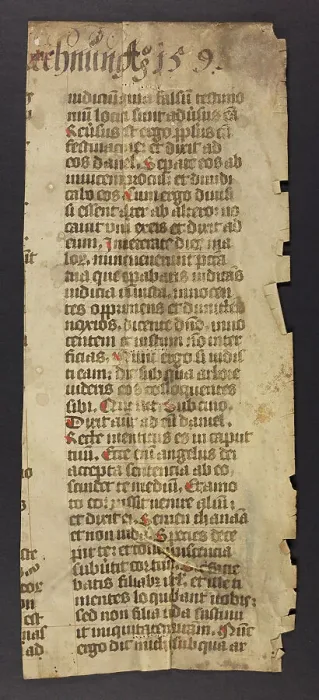 Rechnung 159
iudiciū quia falsū testimo
niū locuti sunt adūsus eā
Reūsus est ergo pplus cū
festinacione: et dixit ad
eos daniel. Separate eos ab
invicem procul: et diiudi
cabo eos. Cum ergo divisi
essent alter ab altero: vo
cavit unū ex eis et dixit ad
eum. Inveterate dierū ma
lor. nunc venerunt pcca
ta tua que opabaris iudicās
iudicia iniusta. innocen
tes opprimens et dimittens
noxios. dicente dno. inno
centem et iustum nō inter
ficias. Nunc ergo si vidis
ti eam: dic sub qua arbore
videris eos colloquentes
sibi. Qui ait. Sub cino.
Dixit aut ad eū daniel.
Recte mentitus es in caput
tuū. Ecce eni angelus dei
accepta sentencia ab eo.
scindet te mediū. Et amo
to eo iussit venire aliū:
et dixit ei. Semen chanaā
et non iuda. Species dece
pit te: et concupiscencia
subvtit cor tuum. Sic
batis filiab isrl. et ille ti
mentes loqbant vobis:
sed non filia iuda sustinu
it iniquitatem vram. Nūc
ergo dic michi sub qua ar